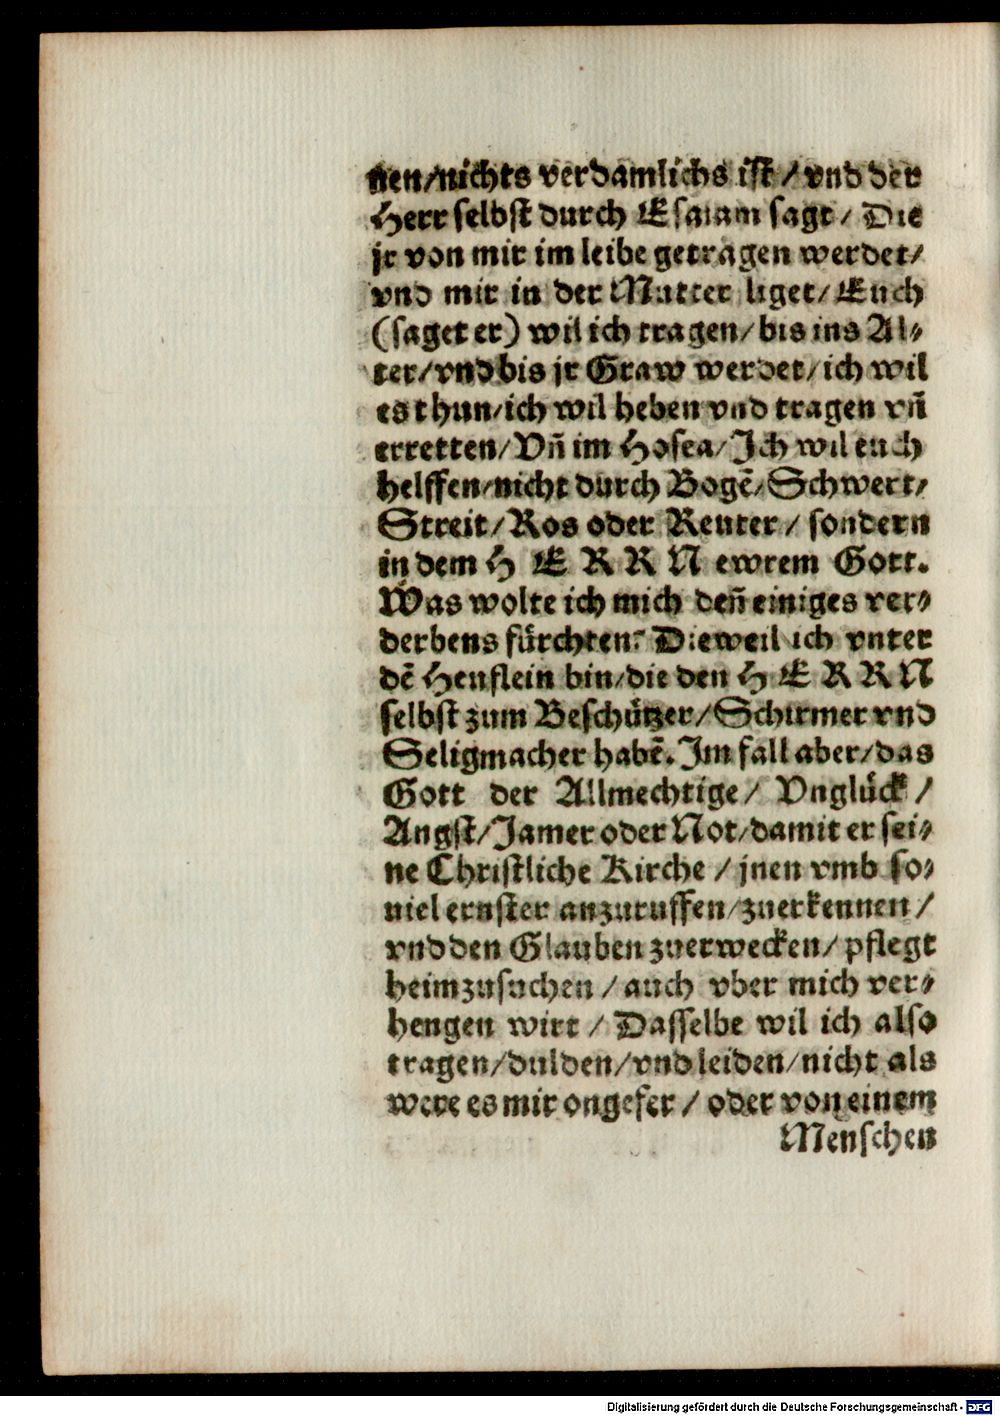 nen/nichts verdamlichs ist / vnd der
Herr selbst durch Esaiam sagt / Die
jr von mir im leibe getragen werdet/
vnd mir in der Mutter liget/ Euch
(saget er) wil ich tragen/bis ins Al⸗
ter/vnd bis jr Graw werdet/ich wil
es thun/ich wil heben vnd tragen vñ
erretten/Vñ im Hosea/Ich wil euch
helffen/nicht durch Bogẽ/Schwert/
Streit/Ros oder Reuter / sondern
in dem H E R R N ewrem Gott.
Was wolte ich mich deñ einiges ver⸗
derbens fürchten? Dieweil ich vnter
dẽ Heuflein bin/die den H E R R N
selbst zum Beschützer/Schirmer vnd
Seligmacher habẽ. Im fall aber/das
Gott der Allmechtige/ Vnglück /
Angst/Jamer oder Not/damit er sei⸗
ne Christliche Kirche / jnen vmb so⸗
uiel ernster anzuruffen/zuerkennen /
vnd den Glauben zuerwecken/ pflegt
heimzusuchen / auch vber mich ver⸗
hengen wirt / Dasselbe wil ich also
tragen/dulden/vnd leiden/nicht als
were es mir ongefer / oder von einem
Menschen
Digitalisierung gefördert durch die Deutsche Forschungsgemeinschaft - DFG